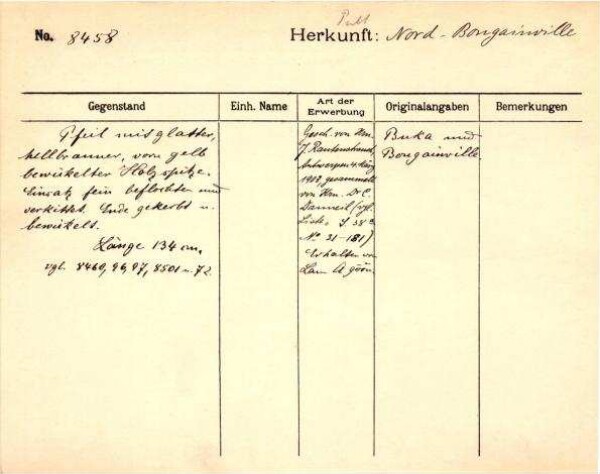 No. 8458
Herkunft: Nord-Bougainville
Gegenstand
Einh. Name
Art der Erwerbung
Originalangaben
Bemerkungen
Pfeil mit glatter,
hellbrauner, vorn gelb
bewickelter Holzspitze.
Einsatz fein beflochten und
verkittet. Ende gekerbt u.
bewickelt.
Länge 134 cm.
vgl. 8460, 96, 97, 8501 u. 72.
Gesch. von Hrn.
J. Rautenstrauch,
Antwerpen 4. März
1908, gesammelt
von Hrn. Dr.
(vgl.
Liste, S. 38
No 31-181)
Erhalten von
Buka und
Bougainville.